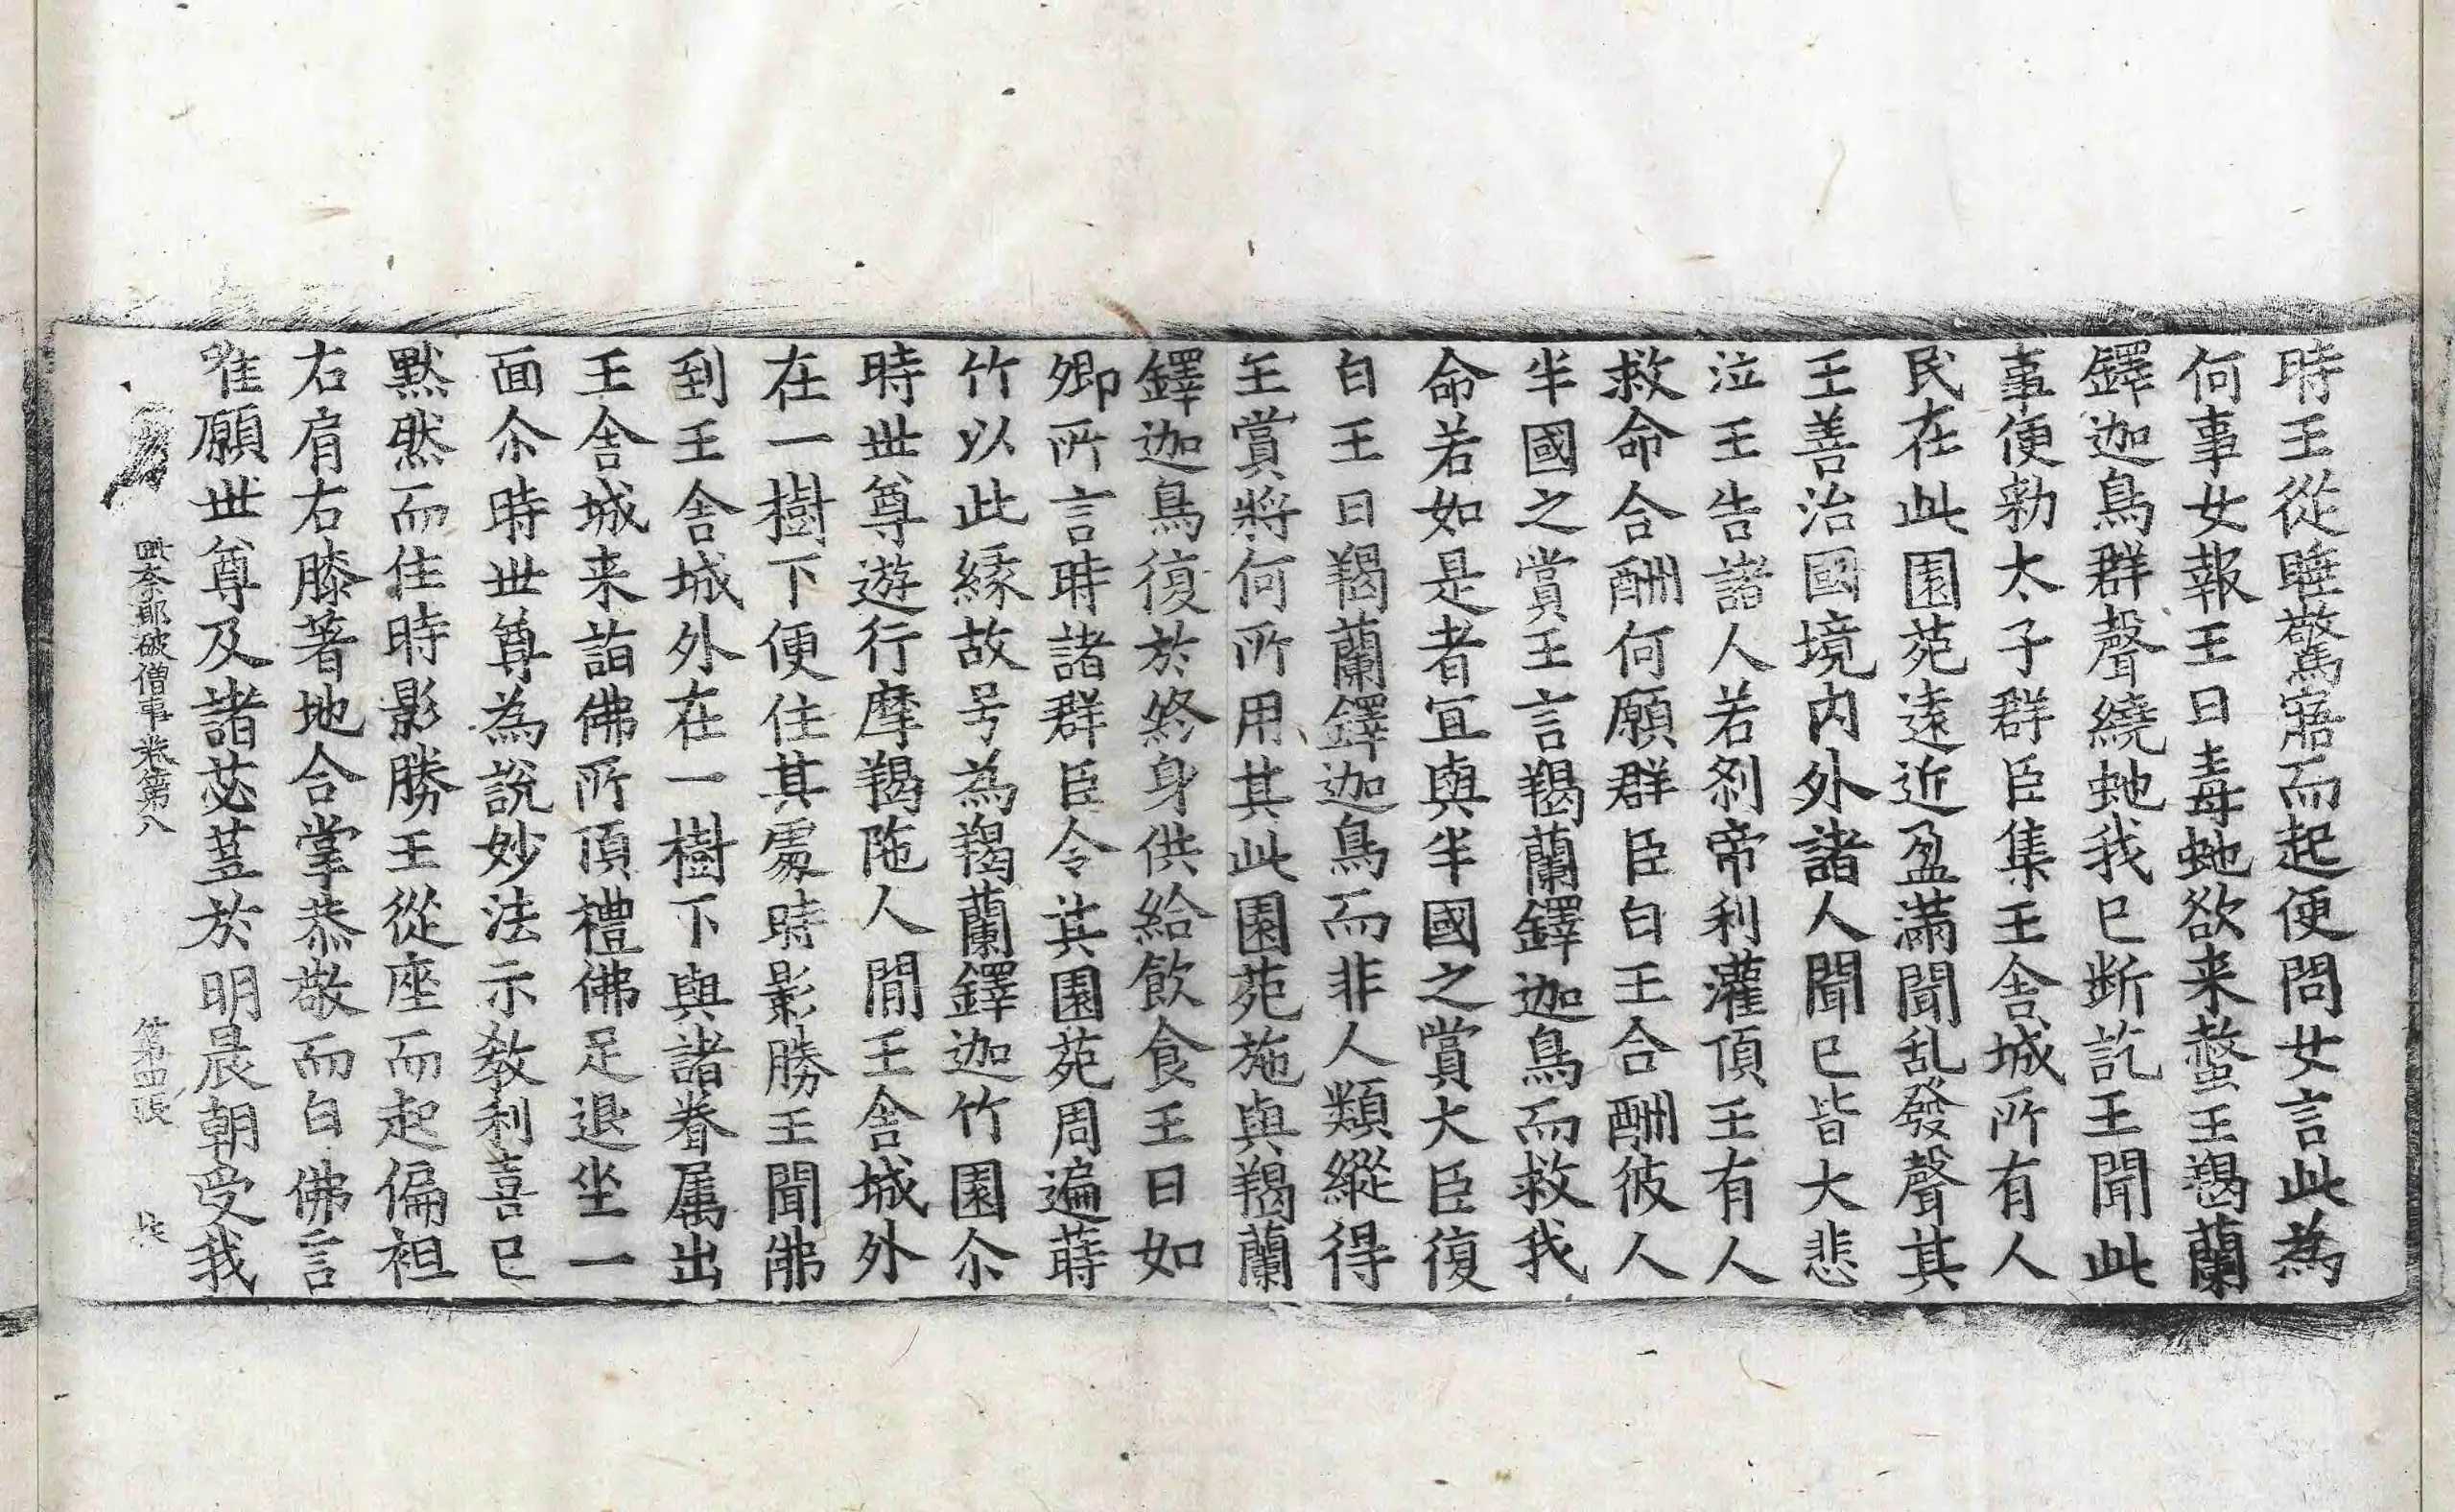 時王從睡驚寤而起便問女言此為
何事女報王曰毒虵欲来螫王羯蘭
鐸迦鳥群聲繞虵我已斷訖王聞此
事便勑太子群臣集王舍城所有人
民在此園苑遠近盈滿聞乱發聲其
王善治國境内外諸人聞已皆大悲
泣王告諸人若刹帝利灌頂王有人
救命合酬何願群臣白王合酬彼人
半國之賞王言羯蘭鐸迦鳥而救我
命若如是者冝與半國之賞大臣復
白王曰羯蘭鐸迦鳥而非人類縱得
王賞將何所用其此園苑施與羯蘭
鐸迦鳥復於終身供給飲食王曰如
卿所言時諸群臣令其園苑周遍蒔
竹以此緣故号為羯蘭鐸迦竹園尒
時世尊遊行摩羯陁人間王舍城外
在一樹下便住其處時影勝王聞佛
到王舍城外在一樹下與諸眷属出
王舍城来詣佛所頂禮佛足退坐一
面尒時世尊為說妙法示教利喜已
默然而住時影勝王從座而起偏袒
右肩右膝著地合掌恭敬而白佛言
唯願世尊及諸苾蒭於明晨朝受我
毗奈耶破僧事卷第八 第四張